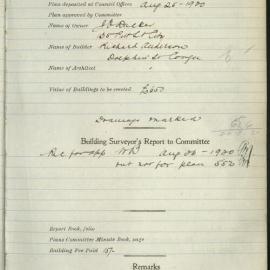 Plans deposited at Council Offices Aug 25 - 1920
Plan approved by Committee
Name of Owner
Name of Builder Richard Anderson
Dolphin St Coogee
Name of Architect
Value of Buildings to be erected £650
Drainage marked
Building Surveyor's Report to Committee
Rec for app Aug 26 - 1920
but not for plan 552
Report Book, folio
Plans Committee Minute Book, page
Building Fee Paid 15/-
Remarks